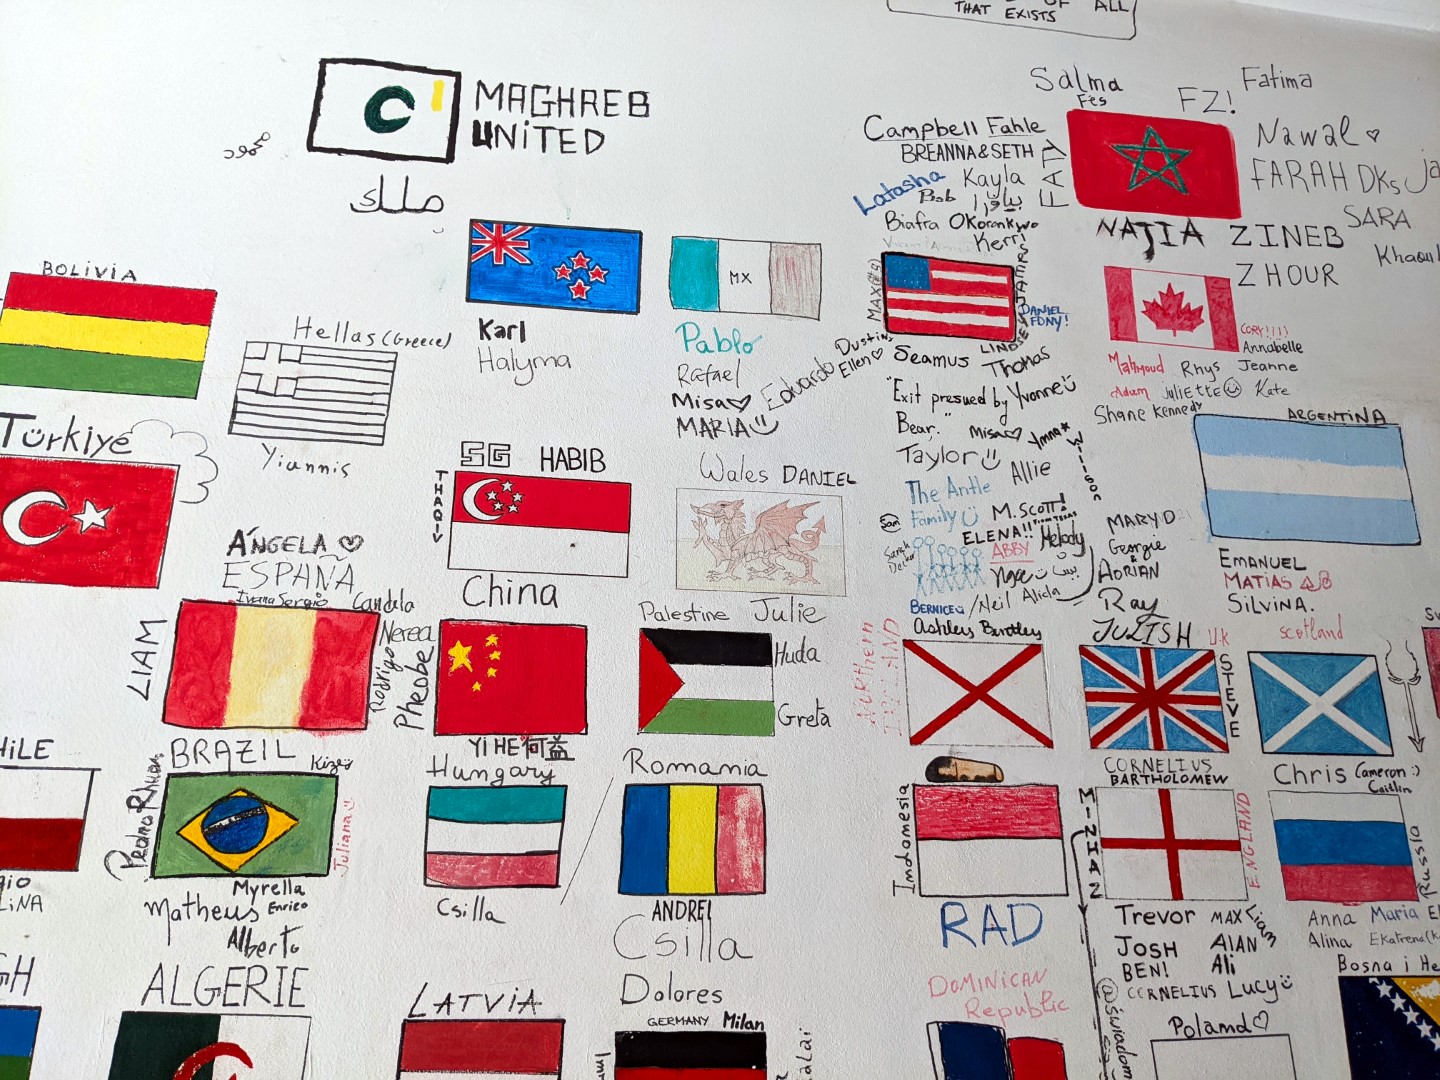 THAT EXISTS
ALL
MAGHREB
UNITED
BOLIVIA
Hellas (Greece)
Yiannis
Türkiye
Karl
Halyma
MX
Pablo
Rafael
Misa♡
MARIA
Eduardo
Salma
Fes
FZ!
Fatima
Nawal ♡
FARAH DKs
SARA
NAJIA
ZINEB
ZHOUR
FATY
Campbell Fahle
BREANNA & SETH
Latasha
Kayla
Bob
Biafra Okoronkwo
Kerri
JAMES
MAX(S)
DANIEL
Dustin
Ellen♡
Seamus
LINDSEY
Thomas
"Exit presued by
Bear."
Yvonne
Misa♡
Amna*
Wilson
Taylor
Allie
The Antle
Family
Sam
M. Scott!
FROM TEXAS
ELENA!!
ABBY
Melody
Sarah
Decker
Neil
Alicia
BERNICE
Ashley Bentley
CORY!!!!
Annabelle
Mahmoud
Rhys
Jeanne
Adam
JuliETTE
Kate
Shane Kennedy
ARGENTINA
EMANUEL
MATIAS
SILVINA.
MARYD
Georgie
&
ADRIAN
Ray
JULISH
U.K
STEVE
Scotland
SG
HABIB
THAQIV
Wales DANIEL
Julie
ANGELA ♡
ESPAÑA
Ivana
Sergio
Candela
LIAM
Nerea
Rodrigo
Pheobe
China
Yi HE 何益
Palestine
Huda
Greta
NORTHERN
IRELAND
CORNELIUS
BARTHOLOMEW
Chris
Cameron :)
Caitlin
HILE
BRAZIL
Pedro
Rhuan
Juliana
Myrella
Matheus
Enrico
Alberto
Hungary
Csilla
Romania
ANDREI
Csilla
Dolores
Indonesia
RAD
MINHAZ
ENGLAND
Trevor
MAX
Liam
JOSH
ALAN
BEN!
Ali
CORNELIUS
Lucy
Russia
Anna
Maria
Alina
Bosna i He
ALGERIE
LATVIA
GERMANY
Milan
DOMINICAN
Republic
Poland♡